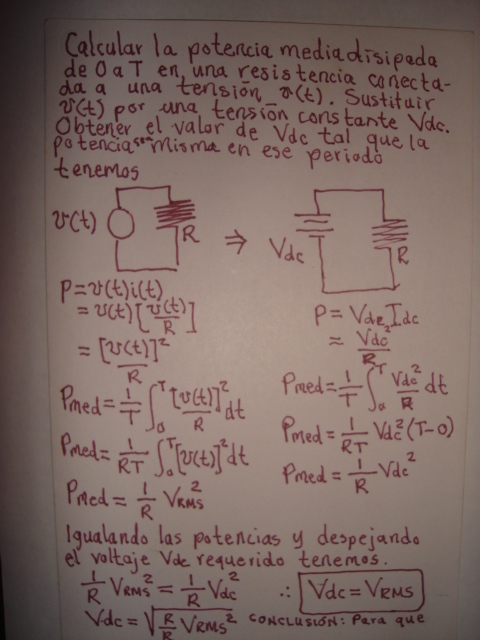 Calcular la potencia media disipada
de 0 a T en una resistencia conecta-
da a una tensión v(t). Sustituir
v(t) por una tensión constante Vdc.
Obtener el valor de Vdc tal que la
potencia sea misma en ese periodo
tenemos
v(t) R ⇒ Vdc R
P = v(t)i(t)
= v(t)[v(t)/R]
= [v(t)]²/R
Pmed = 1/T ∫₀ᵀ [v(t)]²/R dt
Pmed = 1/RT ∫₀ᵀ [v(t)]² dt
Pmed = 1/R VRMS²
P = Vdc Idc
= Vdc²/R
Pmed = 1/T ∫₀ᵀ Vdc²/R dt
Pmed = 1/RT Vdc² (T-0)
Pmed = 1/R Vdc²
Igualando las potencias y despejando
el voltaje Vdc requerido tenemos.
1/R VRMS² = 1/R Vdc² ∴ Vdc = VRMS
Vdc = √(R/R VRMS²) CONCLUSIÓN: Para que